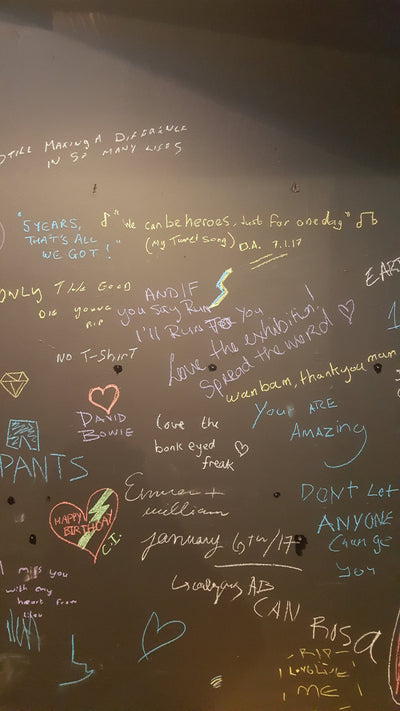 STILL MAKING A DIFFERENCE
IN SO MANY LIVES
"5 YEARS,
THAT'S ALL
WE GOT!"
"We can be heroes, Just for one day"
(My Tunet Song) D.A. 7.1.17
ONLY THE GOOD
DIE YOUNG
RIP
AND IF
you Say Run
I'll Run You
Love the exhibition!
Spread the word
EAR
wanbam, thankyou mam
NO T-SHIRT
DAVID
BOWIE
PANTS
Love the
bonk eyed
freak
YOU ARE
AMAZING
HAPPY
BIRTHDAY
C.I.
Emma +
william
january 6th/17
DONT Let
ANYONE
Change
You
I miss you
with my
heart from
AB
CAN
ROSA
RIP
LONG LIVE
ME